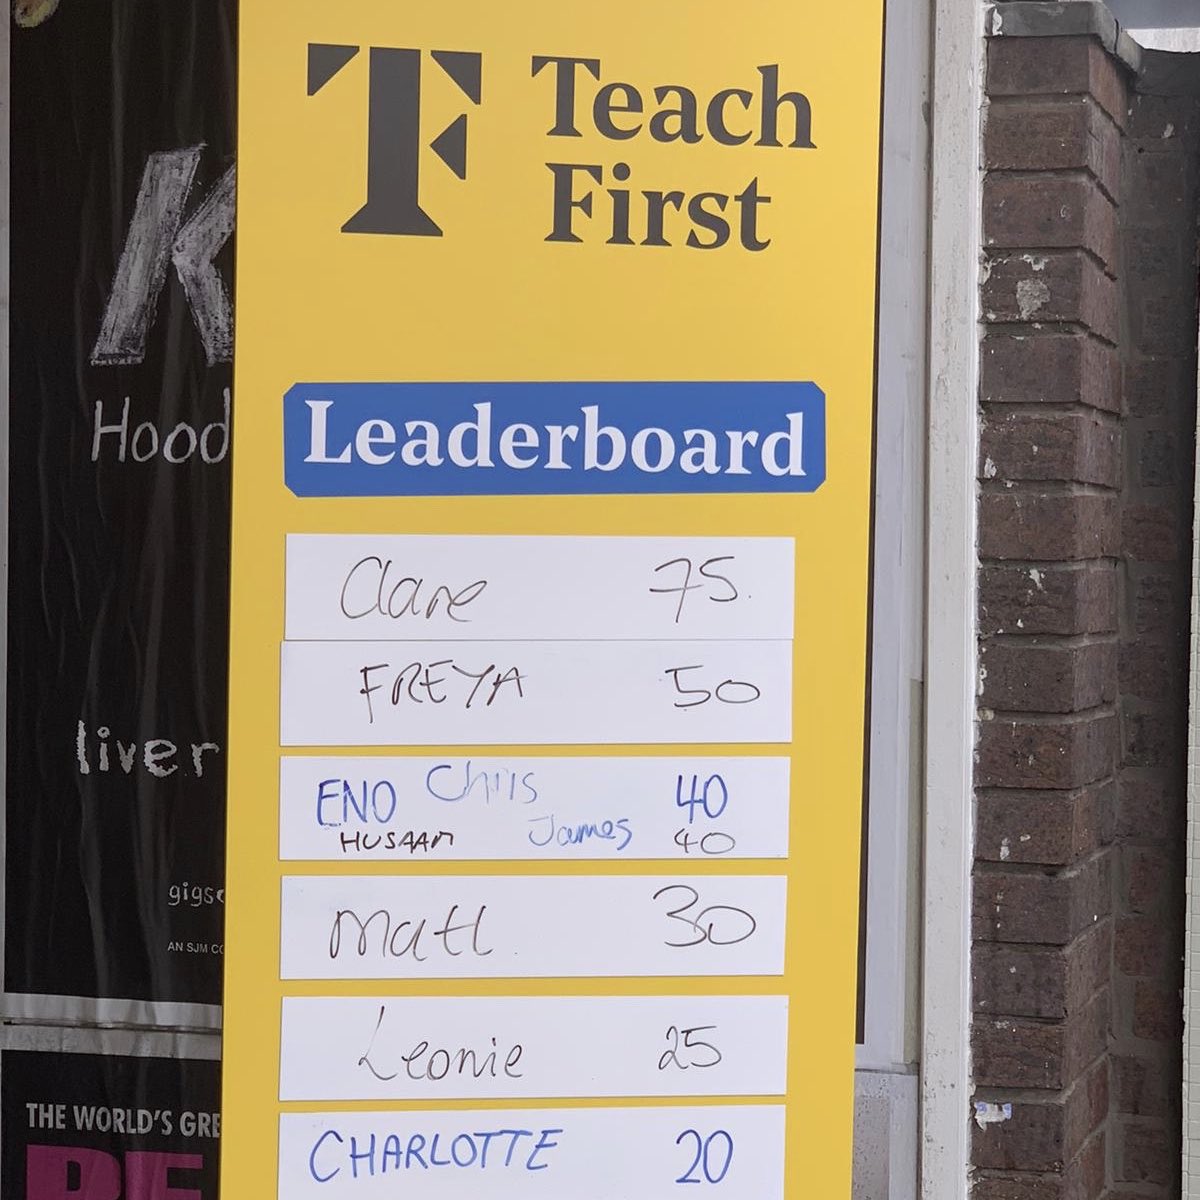 TF
Teach
First
Leaderboard
Clare 75
FREYA 50
ENO Chris 40
HUSAAM James 40
Matt 30
Leonie 25
CHARLOTTE 20
K
Hood
liver
gigs
AN SJM CO
THE WORLD'S GRE